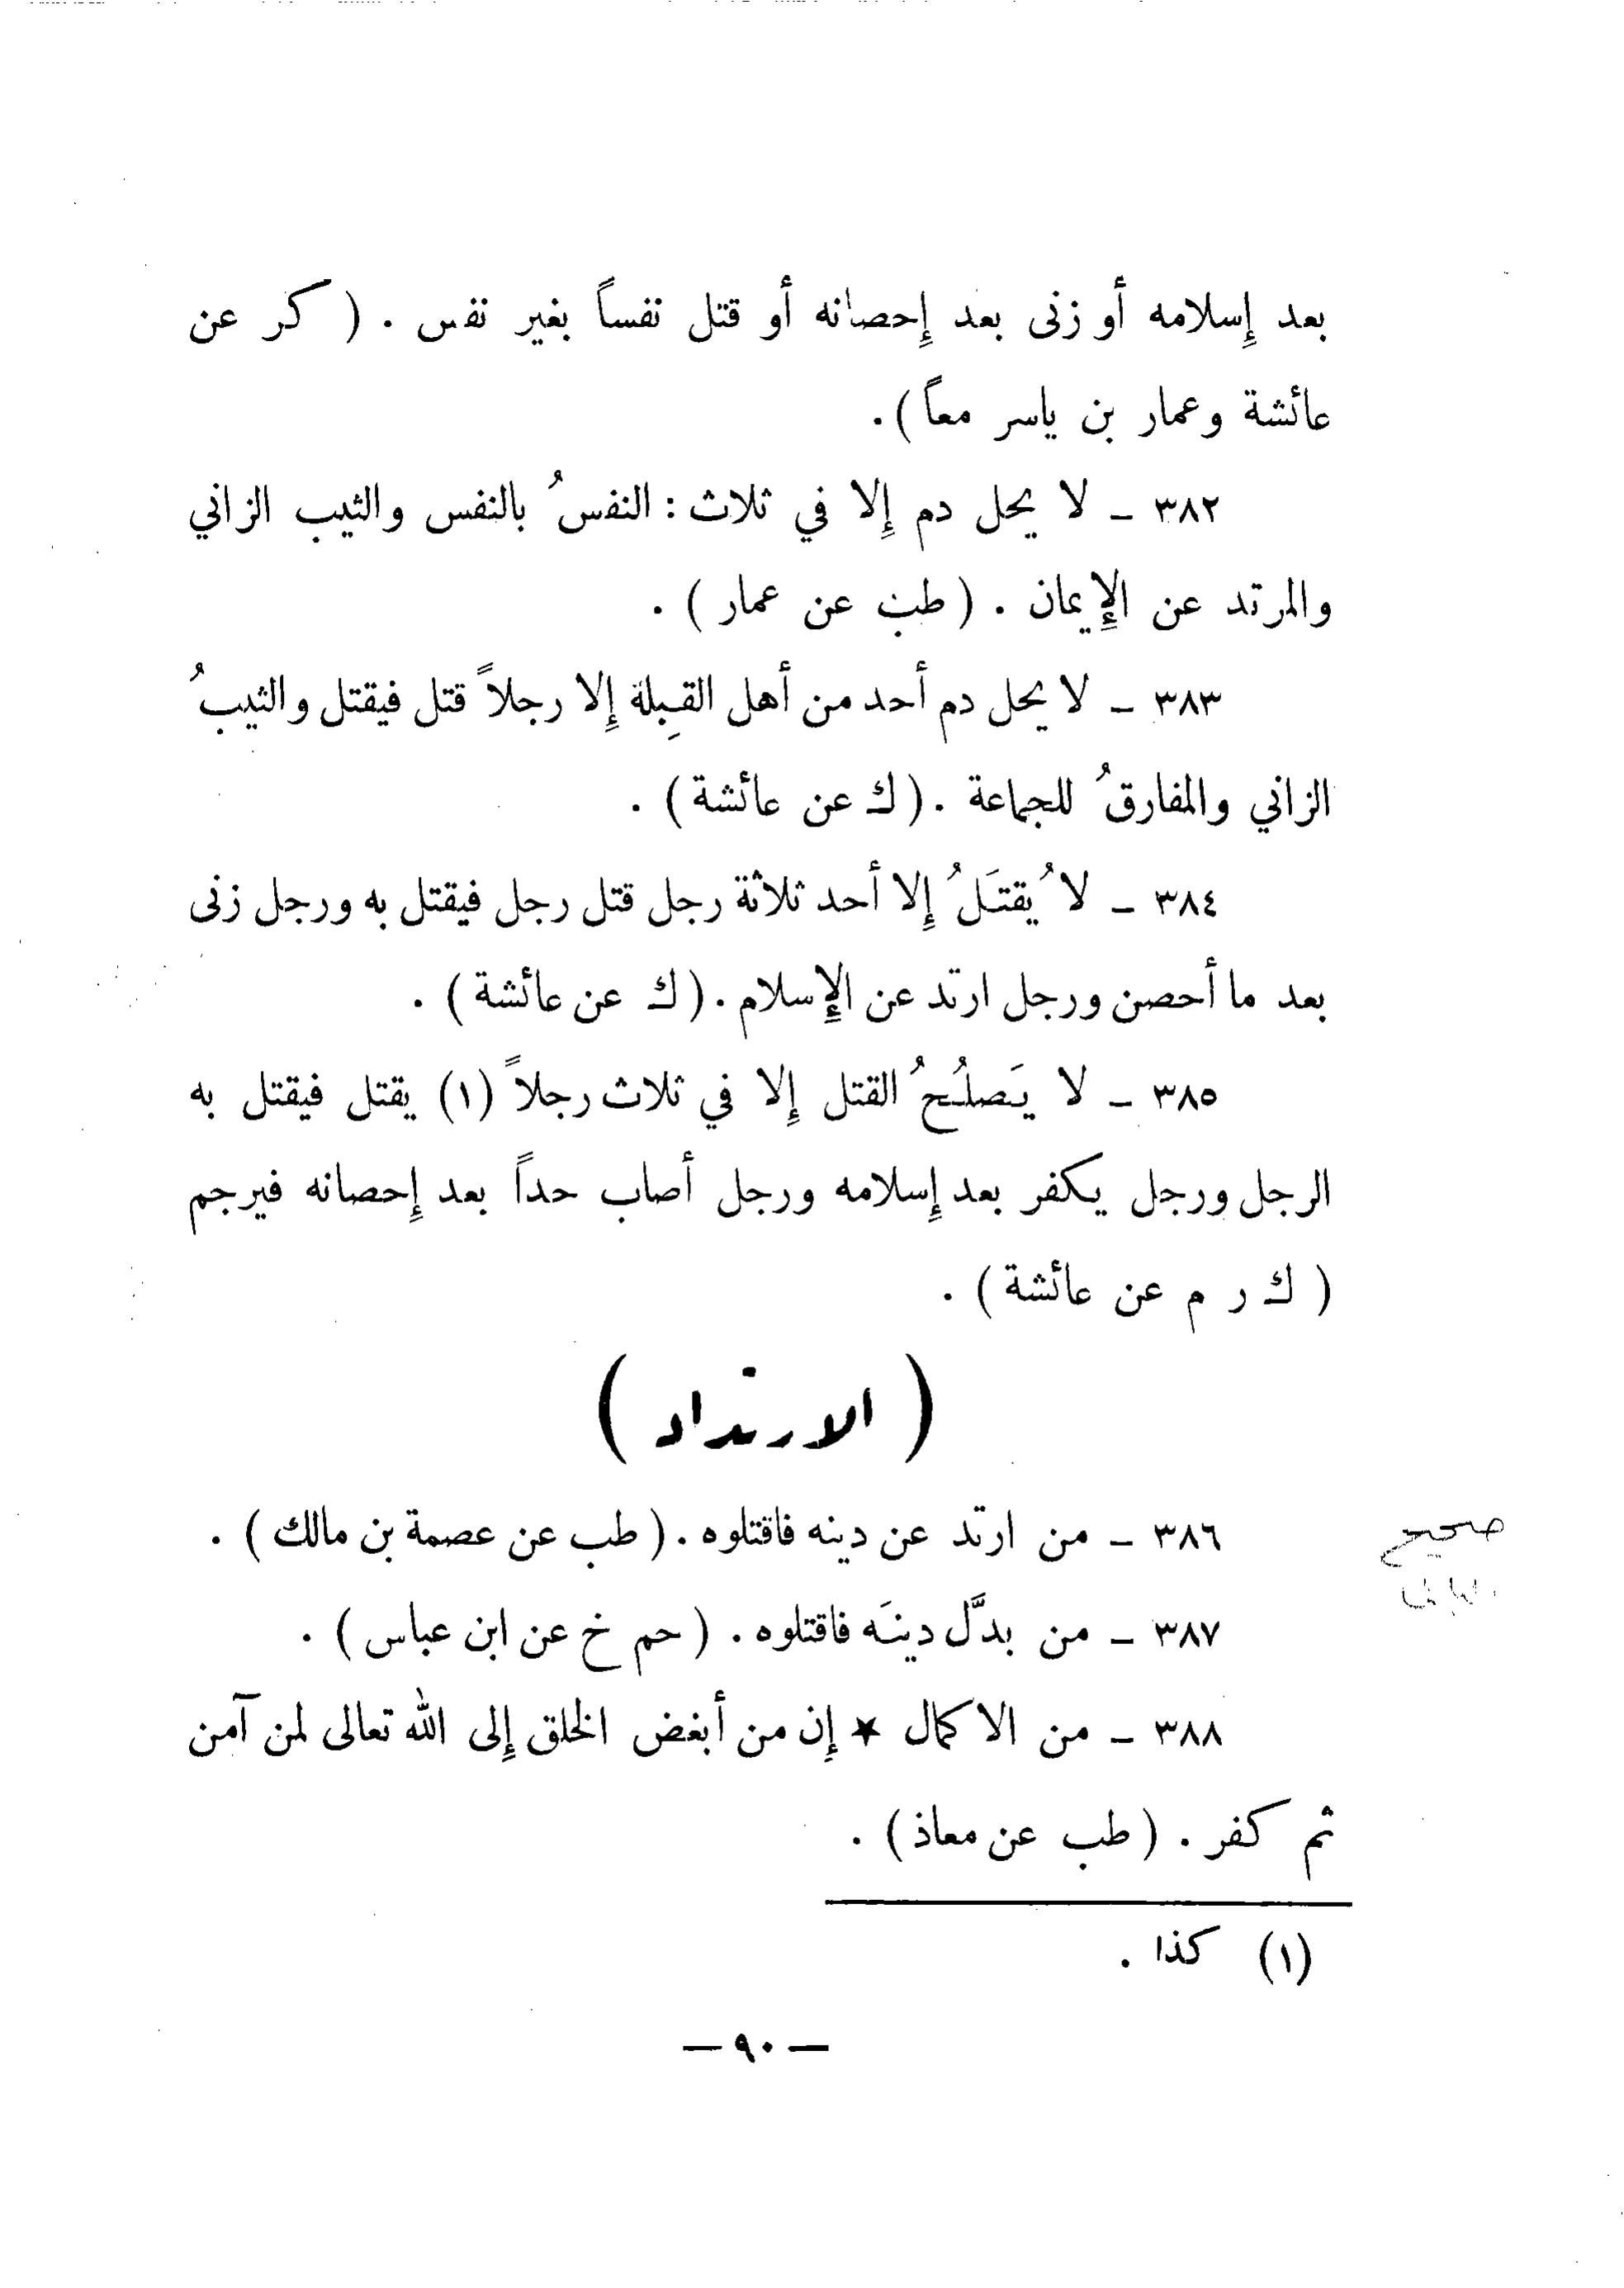 بعد إِسلامه أو زنى بعد إِحصانه أو قتل نفساً بغير نفس . ( كر عن
عائشة وعمار بن ياسر معاً ) .
٣٨٢ – لا يحل دم إِلا في ثلاث : النفسُ بالنفس والثيب الزاني
والمرتد عن الإِيمان . ( طب عن عمار ) .
٣٨٣ – لا يحل دم أحد من أهل القبِلة إِلا رجلاً قتل فيقتل والثيبُ
الزاني والمفارقُ للجماعة . ( ك عن عائشة ) .
٣٨٤ – لا يُقتَلُ إِلا أحد ثلاثة رجل قتل رجل فيقتل به ورجل زنى
بعد ما أحصن ورجل ارتد عن الإِسلام . ( ك عن عائشة ) .
٣٨٥ – لا يَصلُحُ القتل إِلا في ثلاث رجلاً (١) يقتل فيقتل به
الرجل ورجل يكفر بعد إِسلامه ورجل أصاب حداً بعد إِحصانه فيرجم
( ك ر م عن عائشة ) .
( الارتداد )
٣٨٦ – من ارتد عن دينه فاقتلوه . ( طب عن عصمة بن مالك ) .
صحيح
٣٨٧ – من بدَّل دينَه فاقتلوه . ( حم خ عن ابن عباس ) .
٣٨٨ – من الاكمال ★ إِن من أبغض الخلق إِلى الله تعالى لمن آمن
ثم كفر . ( طب عن معاذ ) .
(١) كذا .
— ٩٠ —